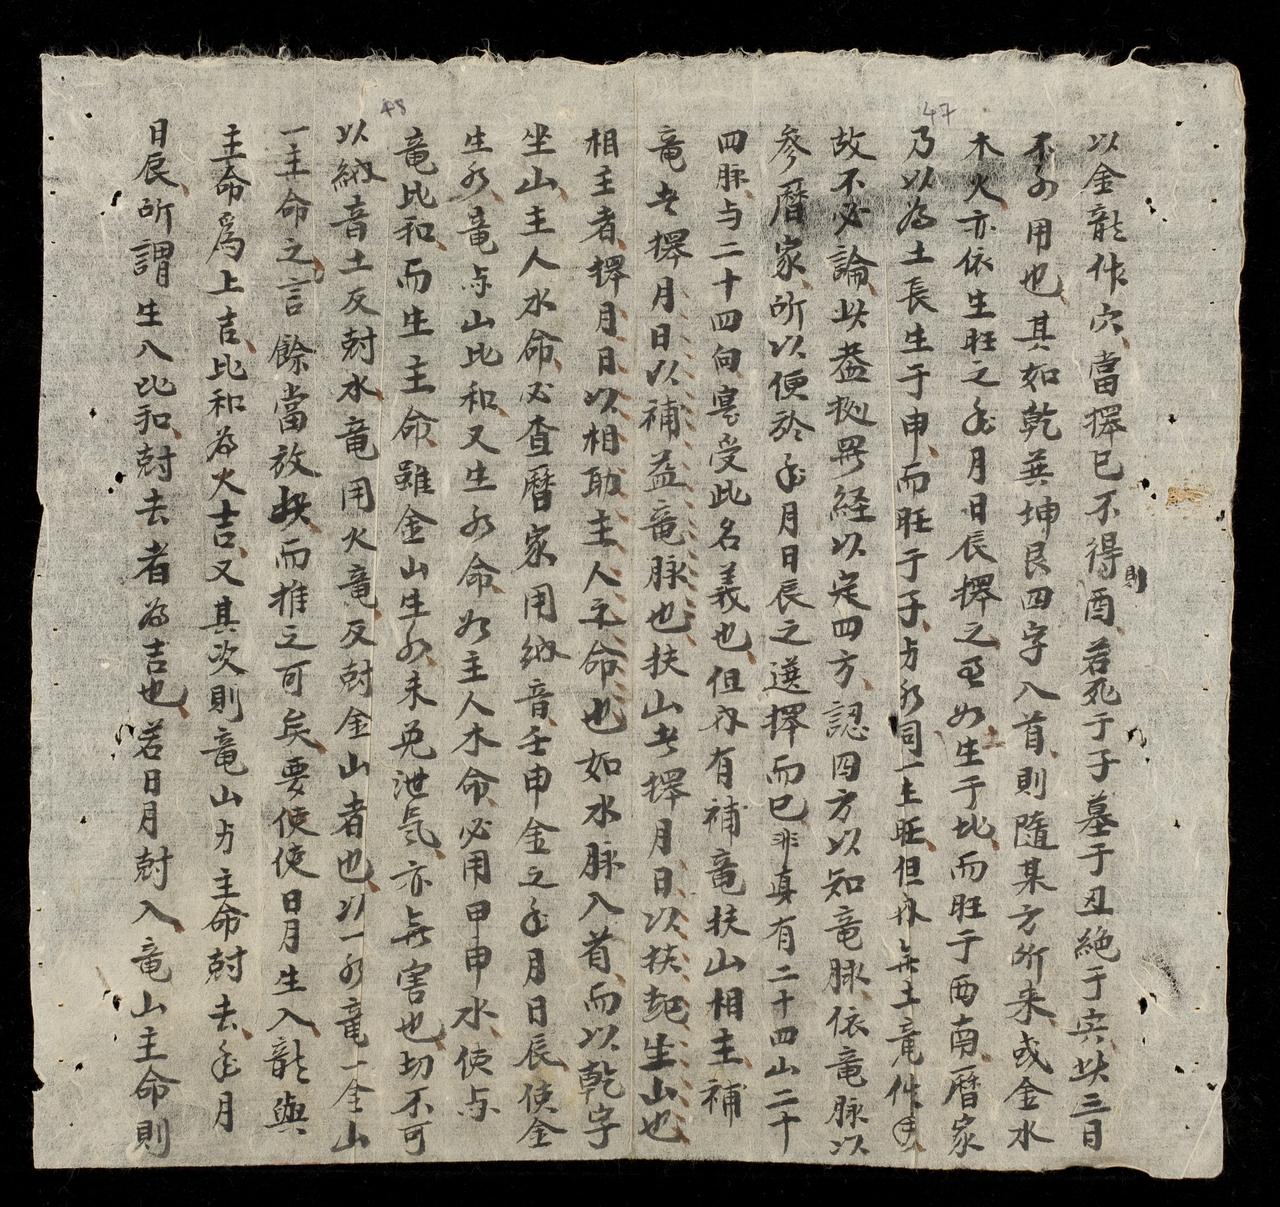 47
48
以金龍作穴當擇巳不得酉若死于子墓于丑絶于寅此三日
則
不可用也其如乾巽坤艮四字入首則隨某方所来或金水
木火亦依生旺之年月日辰擇之至如生于北而旺于西南暦家
乃以為土長生于申而旺于子与水同一生旺但亦無土竜作
故不必論此盖拠羅経以定四方認四方以知竜脉依竜脉以
參暦家所以便於年月日辰之選擇而已非真有二十四山二十
四脉与二十四向寔受此名義也但亦有補竜扶山相主補
竜者擇月日以補益竜脉也扶山者擇月日以扶起坐山也
相主者擇月日以相助主人之命也如水脉入首而以乾字
坐山主人水命必查暦家用納音壬申金之年月日辰使金
生水竜与山比和又生水命如主人木命必用甲申水使与
竜比和而生主命雖金山生水未免泄気亦無害也切不可
以納音土反尅水竜用火竜反尅金山者也以一水竜一金山
一主命之言餘當放此而推之可矣要使使日月生入龍與
主命爲上吉比和為大吉又其次則竜山与主命尅去年月
日辰所謂生入比和尅去者為吉也若日月尅入竜山主命則